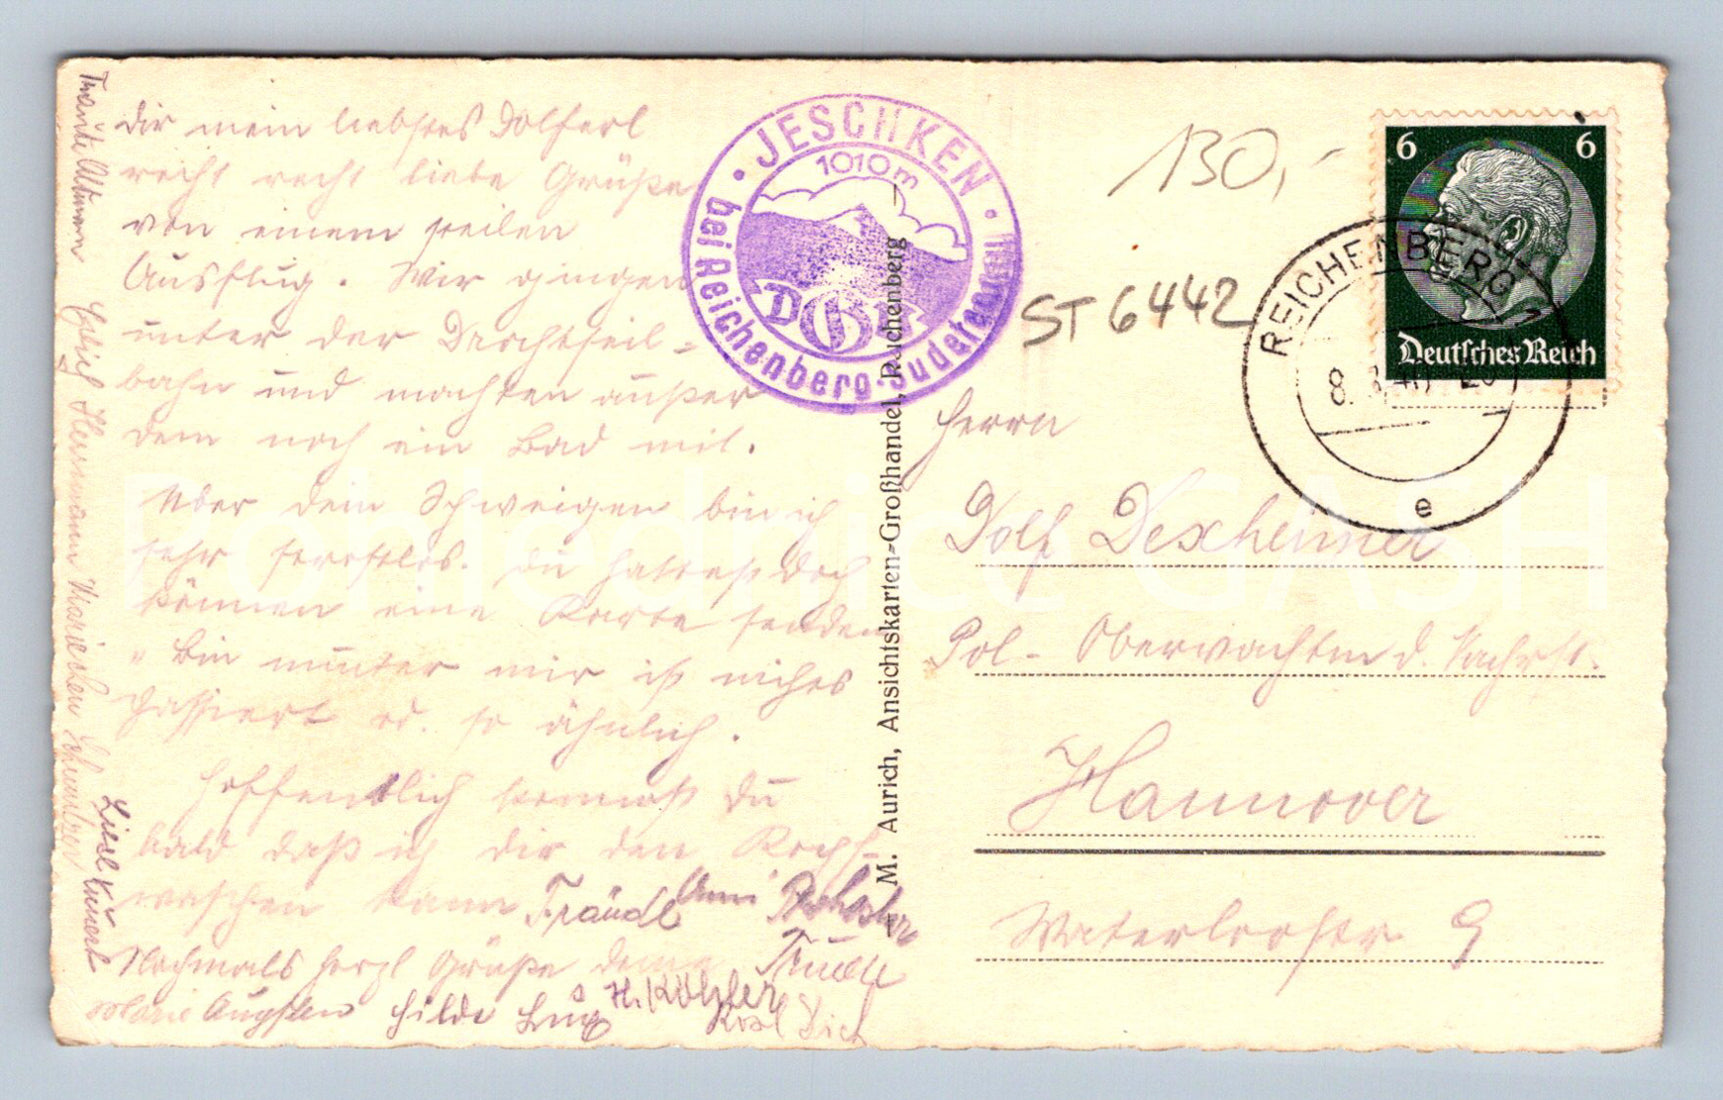 Dir mein liebstes Dolferl
recht recht liebe Grüße
von einem feilen
Ausflug. Wir gingen
unter der Drahtseil-
bahn und machten außer
dem noch ein Bad mit.
Aber dein Schweigen bin ich
sehr . Du hättest doch
können eine Karte senden
„ Bin munter mir ist nichts
passiert od. so ähnlich.
Hoffentlich kommst Du
bald daß ich dir den Kopf-
waschen kann
Nochmals herzl Grüße deine Traudl
Anni
Marie Augsten Hilde
H. Kolzfer
Rosl
Traute Altmann
Hermann Mariechen
Liesl Kunert
JESCHKEN
1010 m
bei Reichenberg-Sudetengau
M. Aurich, Ansichtskarten-Großhandel, Reichenberg
130,-
ST 6442
6 6
Deutsches Reich
REICHENBERG
8. 40
e
Herrn
Dolf Dexheimer
Pol- Oberwachtm d.
Hannover
Waterloostr 9
Pohlednice GASH